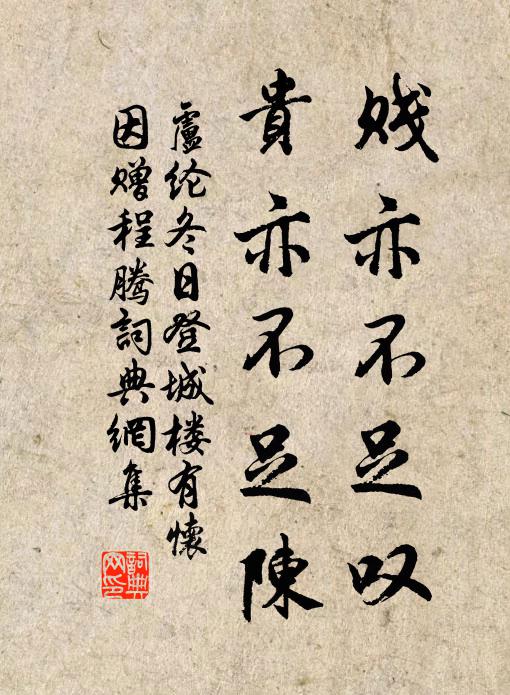 贱亦不足叹
貴亦不足陳
盧纶冬日登城楼有懷
因赠程腾詞典網集
詞典
网印